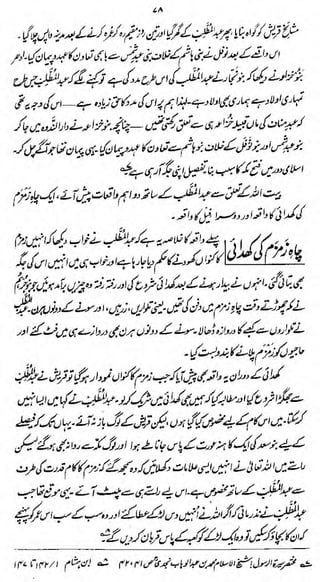 ۷۸
مشائخ قریش کو گواہ بنایا، پھر عبدالمُطَّلِب کے گھر گیا اور تین روز مقیم رہ کر عمرہ کرنے کے بعد مدینہ واپس چلا گیا۔
اس واقعے کے بعد نوفل نے بنی ہاشم کے خلاف بنی عبد شمس سے باہمی تعاون کا عہد و پیمان کیا۔ ادھر
بنو خزاعہ نے دیکھا کہ بنو نجار نے عبدالمُطَّلِب کی اس طرح مدد کی ہے تو کہنے لگے کہ عبدالمُطَّلِب جس طرح
تمہاری اولاد ہے ہماری بھی اولاد ہے۔ لہٰذا ہم پر اس کی مدد کا حق زیادہ ہے — اس کی وجہ یہ تھی
کہ عبد مناف کی ماں قبیلہ خزاعہ ہی سے تعلق رکھتی تھیں — چنانچہ بنو خزاعہ نے دار الندوہ میں جا کر
بنو عبد شمس اور بنو نوفل کے خلاف بنو ہاشم سے تعاون کا عہد و پیمان کیا۔ یہی پیمان تھا جو آگے چل کر
اسلامی دور میں فتح مکہ کا سبب بنا تفصیل اپنی جگہ آ رہی ہے۔
بیت اللہ کے تعلق سے عبدالمُطَّلِب کے ساتھ دو اہم واقعات پیش آئے، ایک چاہِ زَمزَم
کی کھدائی کا واقعہ اور دوسرا فیل کا واقعہ۔
چاہِ زمزم کی کھدائی
پہلے واقعہ کا خلاصہ یہ ہے کہ عبدالمُطَّلِب نے خواب دیکھا کہ انہیں زمزم
کا کنواں کھودنے کا حکم دیا جا رہا ہے اور خواب ہی میں انہیں اس کی جگہ
بھی بتائی گئی۔ انہوں نے بیدار ہونے کے بعد کھدائی شروع کی اور رفتہ رفتہ وہ چیزیں برآمد ہوئیں جو بنو جرہم
نے مکہ چھوڑتے وقت چاہِ زمزم میں دفن کی تھیں، یعنی تلواریں، زرہیں، اور سونے کے دونوں ہرن۔ عبدالمُطَّلِب
نے تلواروں سے کعبے کا دروازہ ڈھالا۔ سونے کے دونوں ہرن بھی دروازے ہی میں فٹ کئے اور
حاجیوں کو زمزم پلانے کا بندوبست کیا۔
کھدائی کے دوران یہ واقعہ بھی پیش آیا کہ جب زمزم کا کنواں نمودار ہو گیا تو قریش نے عبدالمُطَّلِب
سے جھگڑا شروع کیا اور مطالبہ کیا کہ ہمیں بھی کھدائی میں شریک کر لو۔ عبدالمُطَّلِب نے کہا میں ایسا نہیں
کر سکتا۔ میں اس کام کے لیے مخصوص کیا گیا ہوں، لیکن قریش کے لوگ باز نہ آئے۔ یہاں تک کہ فیصلے
کے لیے بنو سعد کی ایک کاہنہ عورت کے پاس جانا طے ہوا اور لوگ مکہ سے روانہ بھی ہو گئے لیکن
راستے میں اللہ تعالیٰ نے انہیں ایسی علامات دکھلائیں کہ وہ سمجھ گئے کہ زمزم کا کام قدرت کی طرف
سے عبدالمُطَّلِب کے ساتھ مخصوص ہے۔ اس لیے راستے ہی سے پلٹ آئے۔ یہی موقع تھا جب
عبدالمُطَّلِب نے نذر مانی کہ اگر اللہ نے انہیں دس لڑکے عطا کئے اور وہ سب کے سب اس عمر کو پہنچے
کہ ان کا بچاؤ کر سکیں تو وہ ایک لڑکے کو کعبہ کے پاس قربان کر دیں گے۔
مختصر سیرۃ الرسول از شیخ الاسلام محمد بن عبد الوہاب نجدی ص ۴۱، ۴۲ ابن ہشام ۱/۱۴۲ تا ۱۴۷